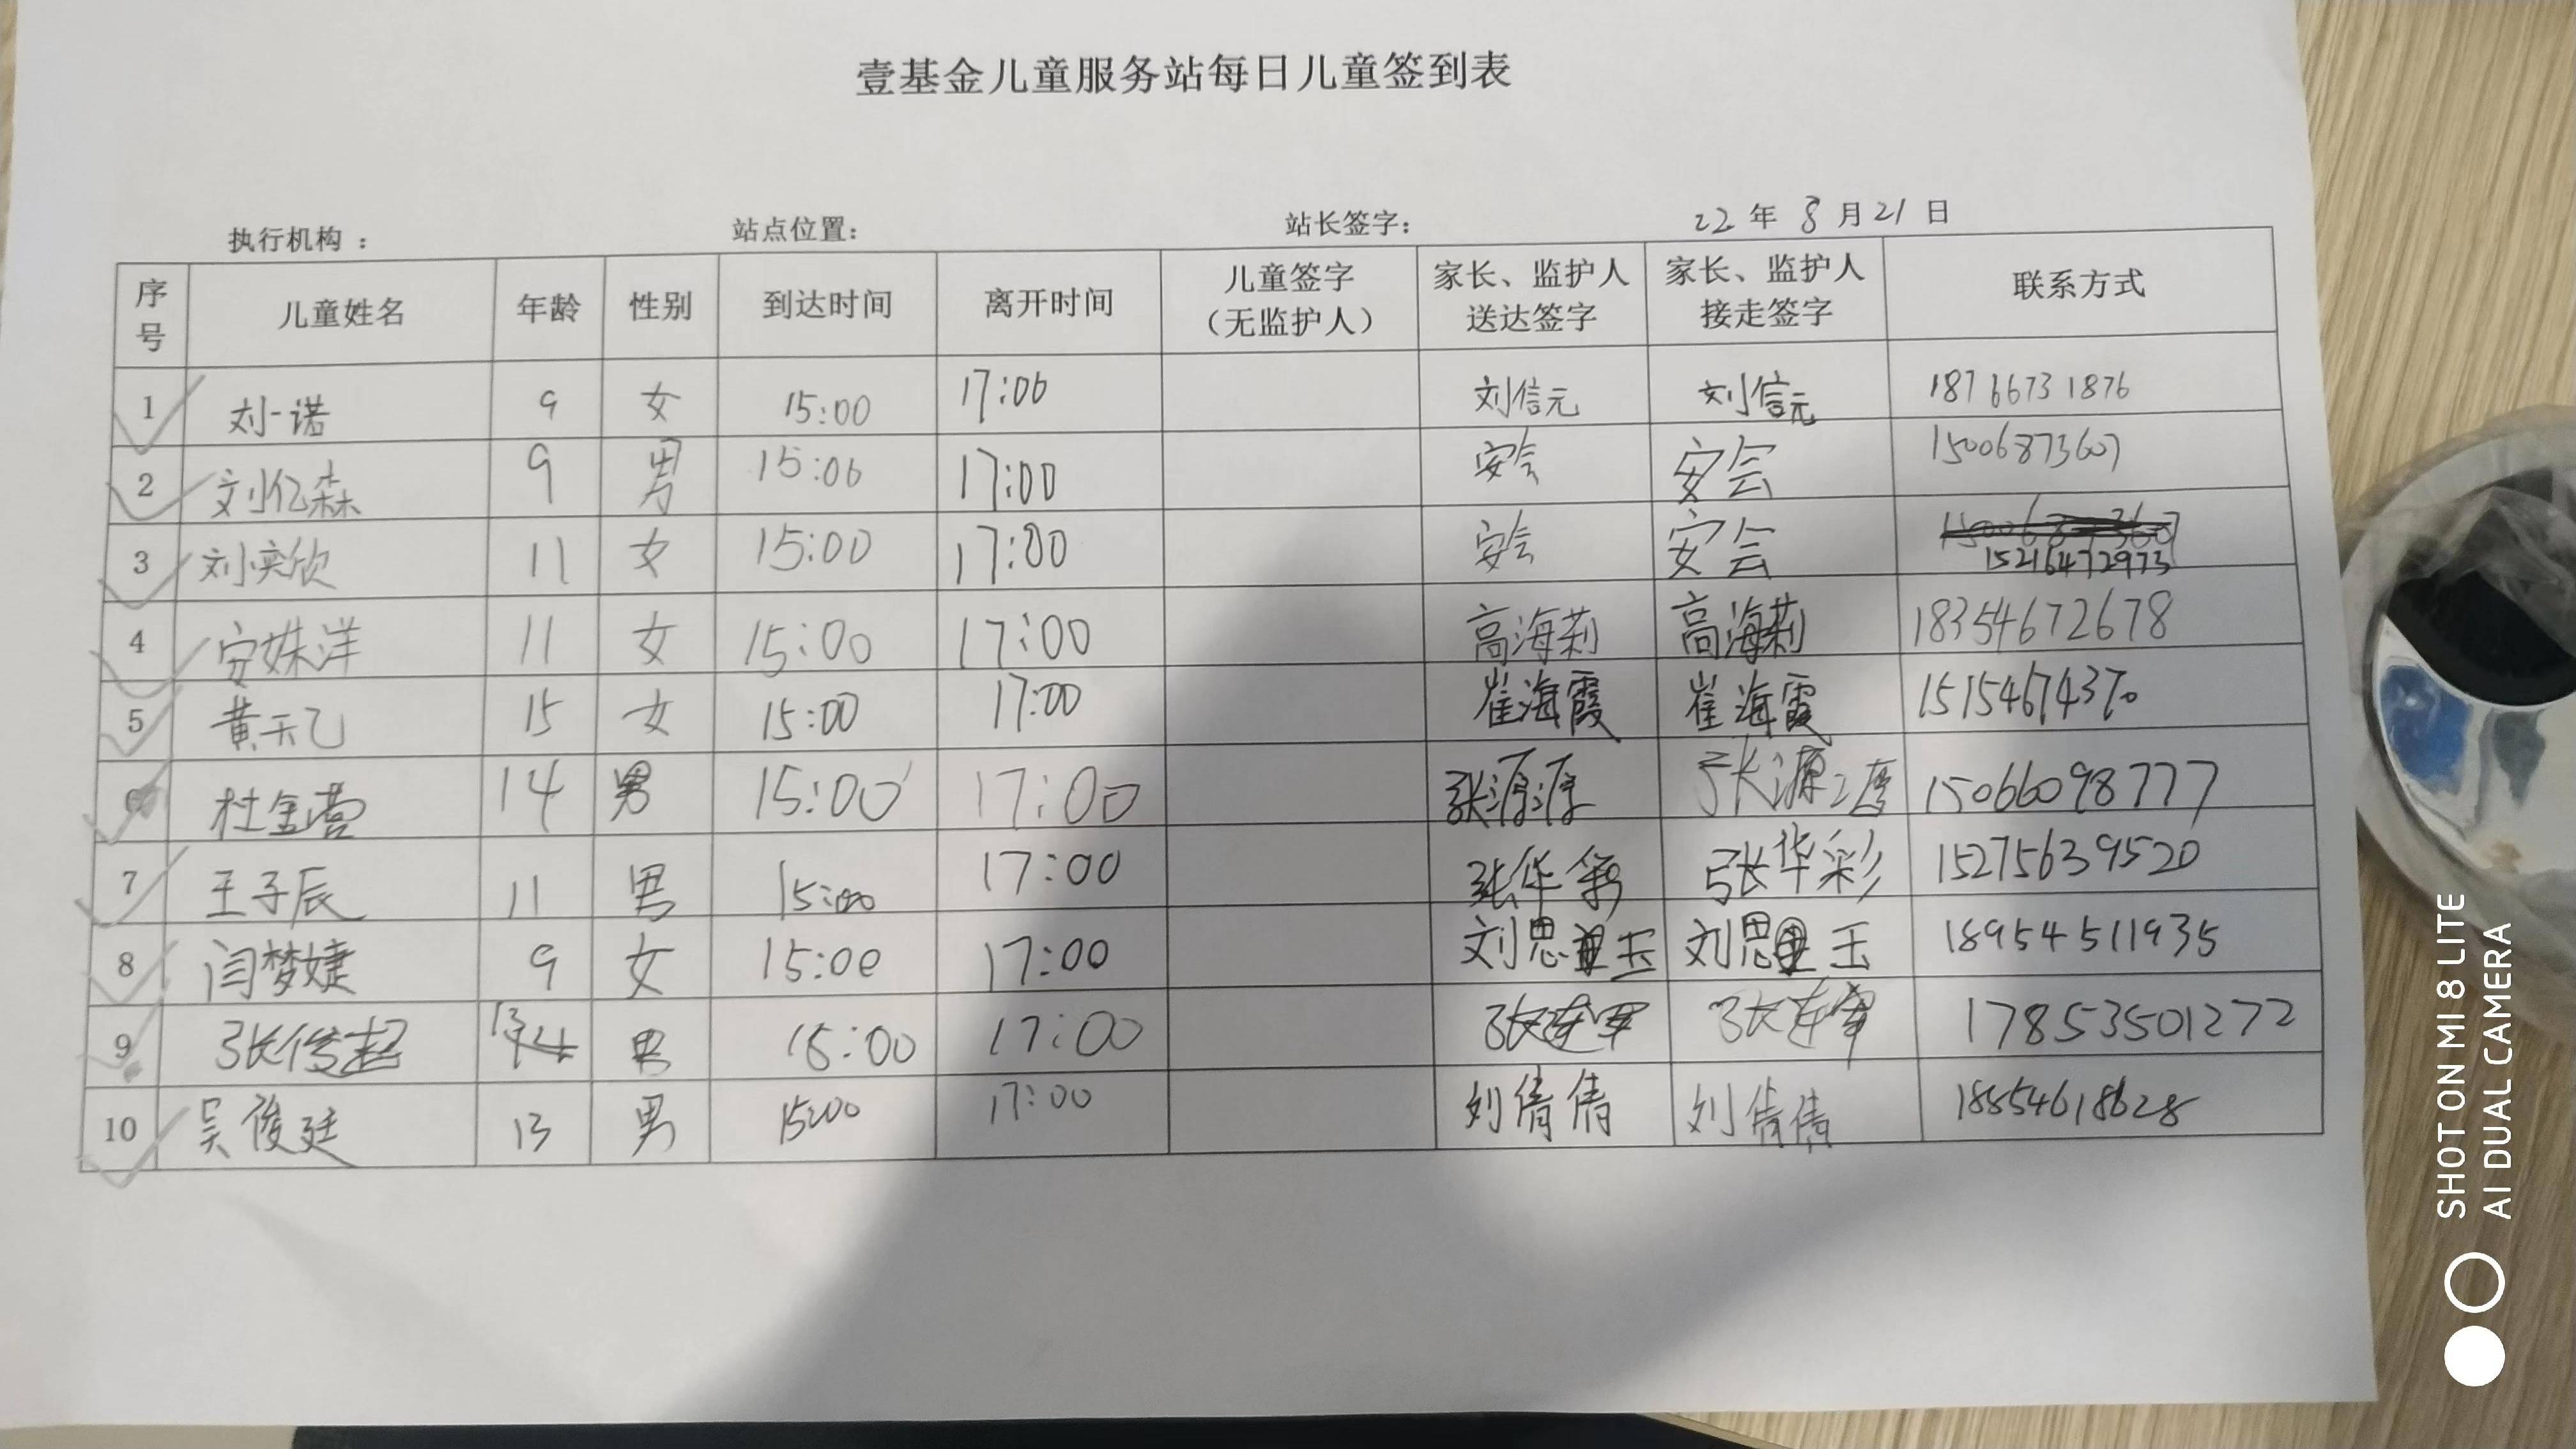 壹基金儿童服务站每日儿童签到表
执行机构： 站点位置： 站长签字： 22年8月21日
序号 儿童姓名 年龄 性别 到达时间 离开时间 儿童签字（无监护人） 家长、监护人送达签字 家长、监护人接走签字 联系方式
1 刘一诺 9 女 15:00 17:00 刘信元 刘信元 18766731876
2 刘亿森 9 男 15:00 17:00 安会 安会 15006873607
3 刘奕欣 11 女 15:00 17:00 安会 安会 15216472973
4 安姝洋 11 女 15:00 17:00 高海莉 高海莉 18354672678
5 黄天乙 15 女 15:00 17:00 崔海霞 崔海霞 15154674370
6 杜金营 14 男 15:00 17:00 张源源 张源源 15066098777
7 王子辰 11 男 15:00 17:00 张华彩 张华彩 15275639520
8 闫梦婕 9 女 15:00 17:00 刘思玉 刘思玉 18954511935
9 张俊超 13 男 15:00 17:00 17853501272
10 吴俊廷 13 男 15:00 17:00 刘倩倩 刘倩倩 18854618628
SHOT ON MI 8 LITE
AI DUAL CAMERA